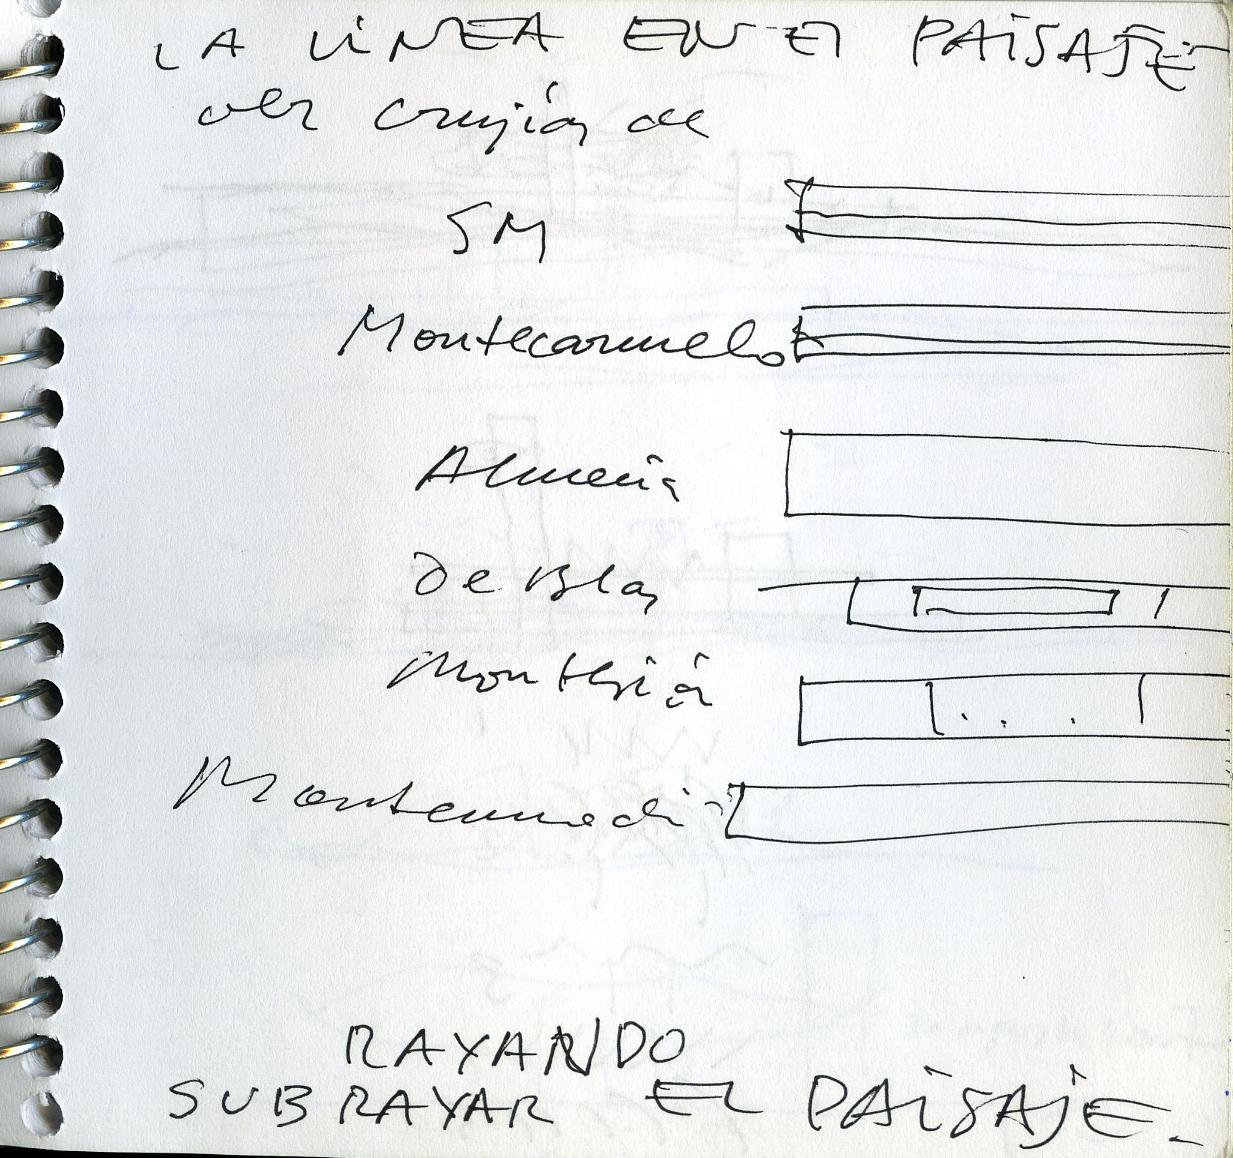 LA LÍNEA EN EL PAISAJE
ver crujía de
SM
Montecarmelo
Almería
De Blas
Monthisa
Montenmedi
RAYANDO
SUBRAYAR EL PAISAJE.